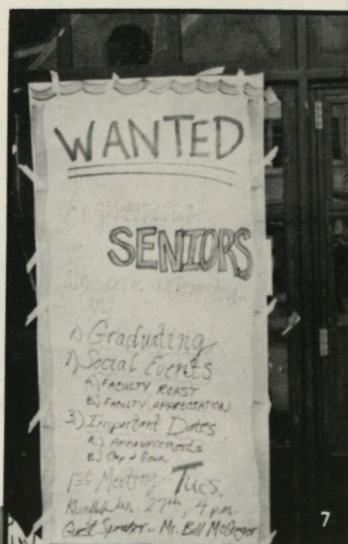 WANTED
Engineering
SENIORS
Who are interested
in
1) Graduating
2) Social Events
A) FACULTY ROAST
B) FACULTY APPRECIATION
3) Important Dates
A.) Announcements
B.) Cap & Gown
1st Meeting - Tues.
Jan. 27th, 4 pm
Guest Speaker - Mr. Bill McGregor
7